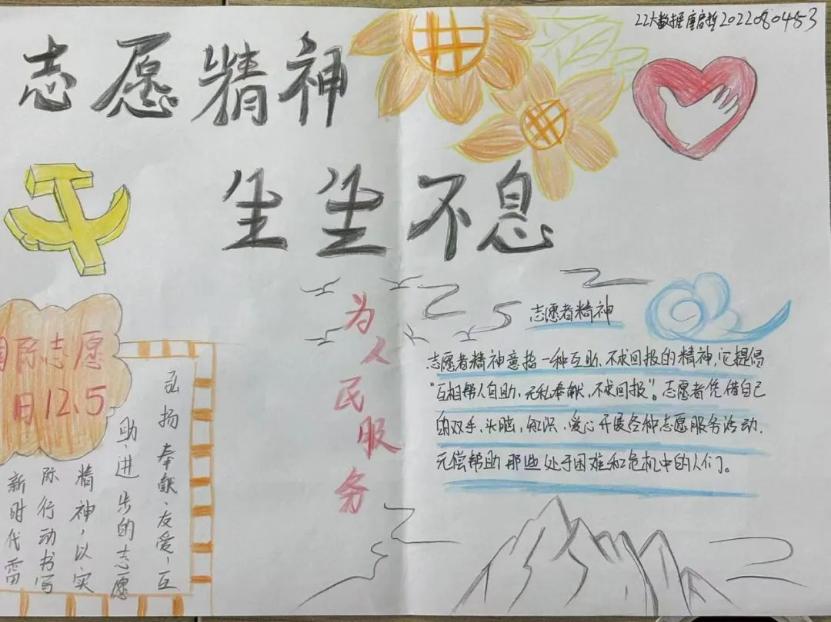 22大数据 2022080453
志愿精神
生生不息
国际志愿
日12.5
弘扬奉献、友爱、互
助、进步的志愿
精神,以实
际行动书写
新时代雷
为人民服务
志愿者精神
志愿者精神意指一种互助、不求回报的精神,它提倡
"互相帮人自助、无私奉献、不求回报"。志愿者凭借自己
的双手、头脑、知识、爱心开展各种志愿服务活动,
无偿帮助那些处于困难和危机中的人们。